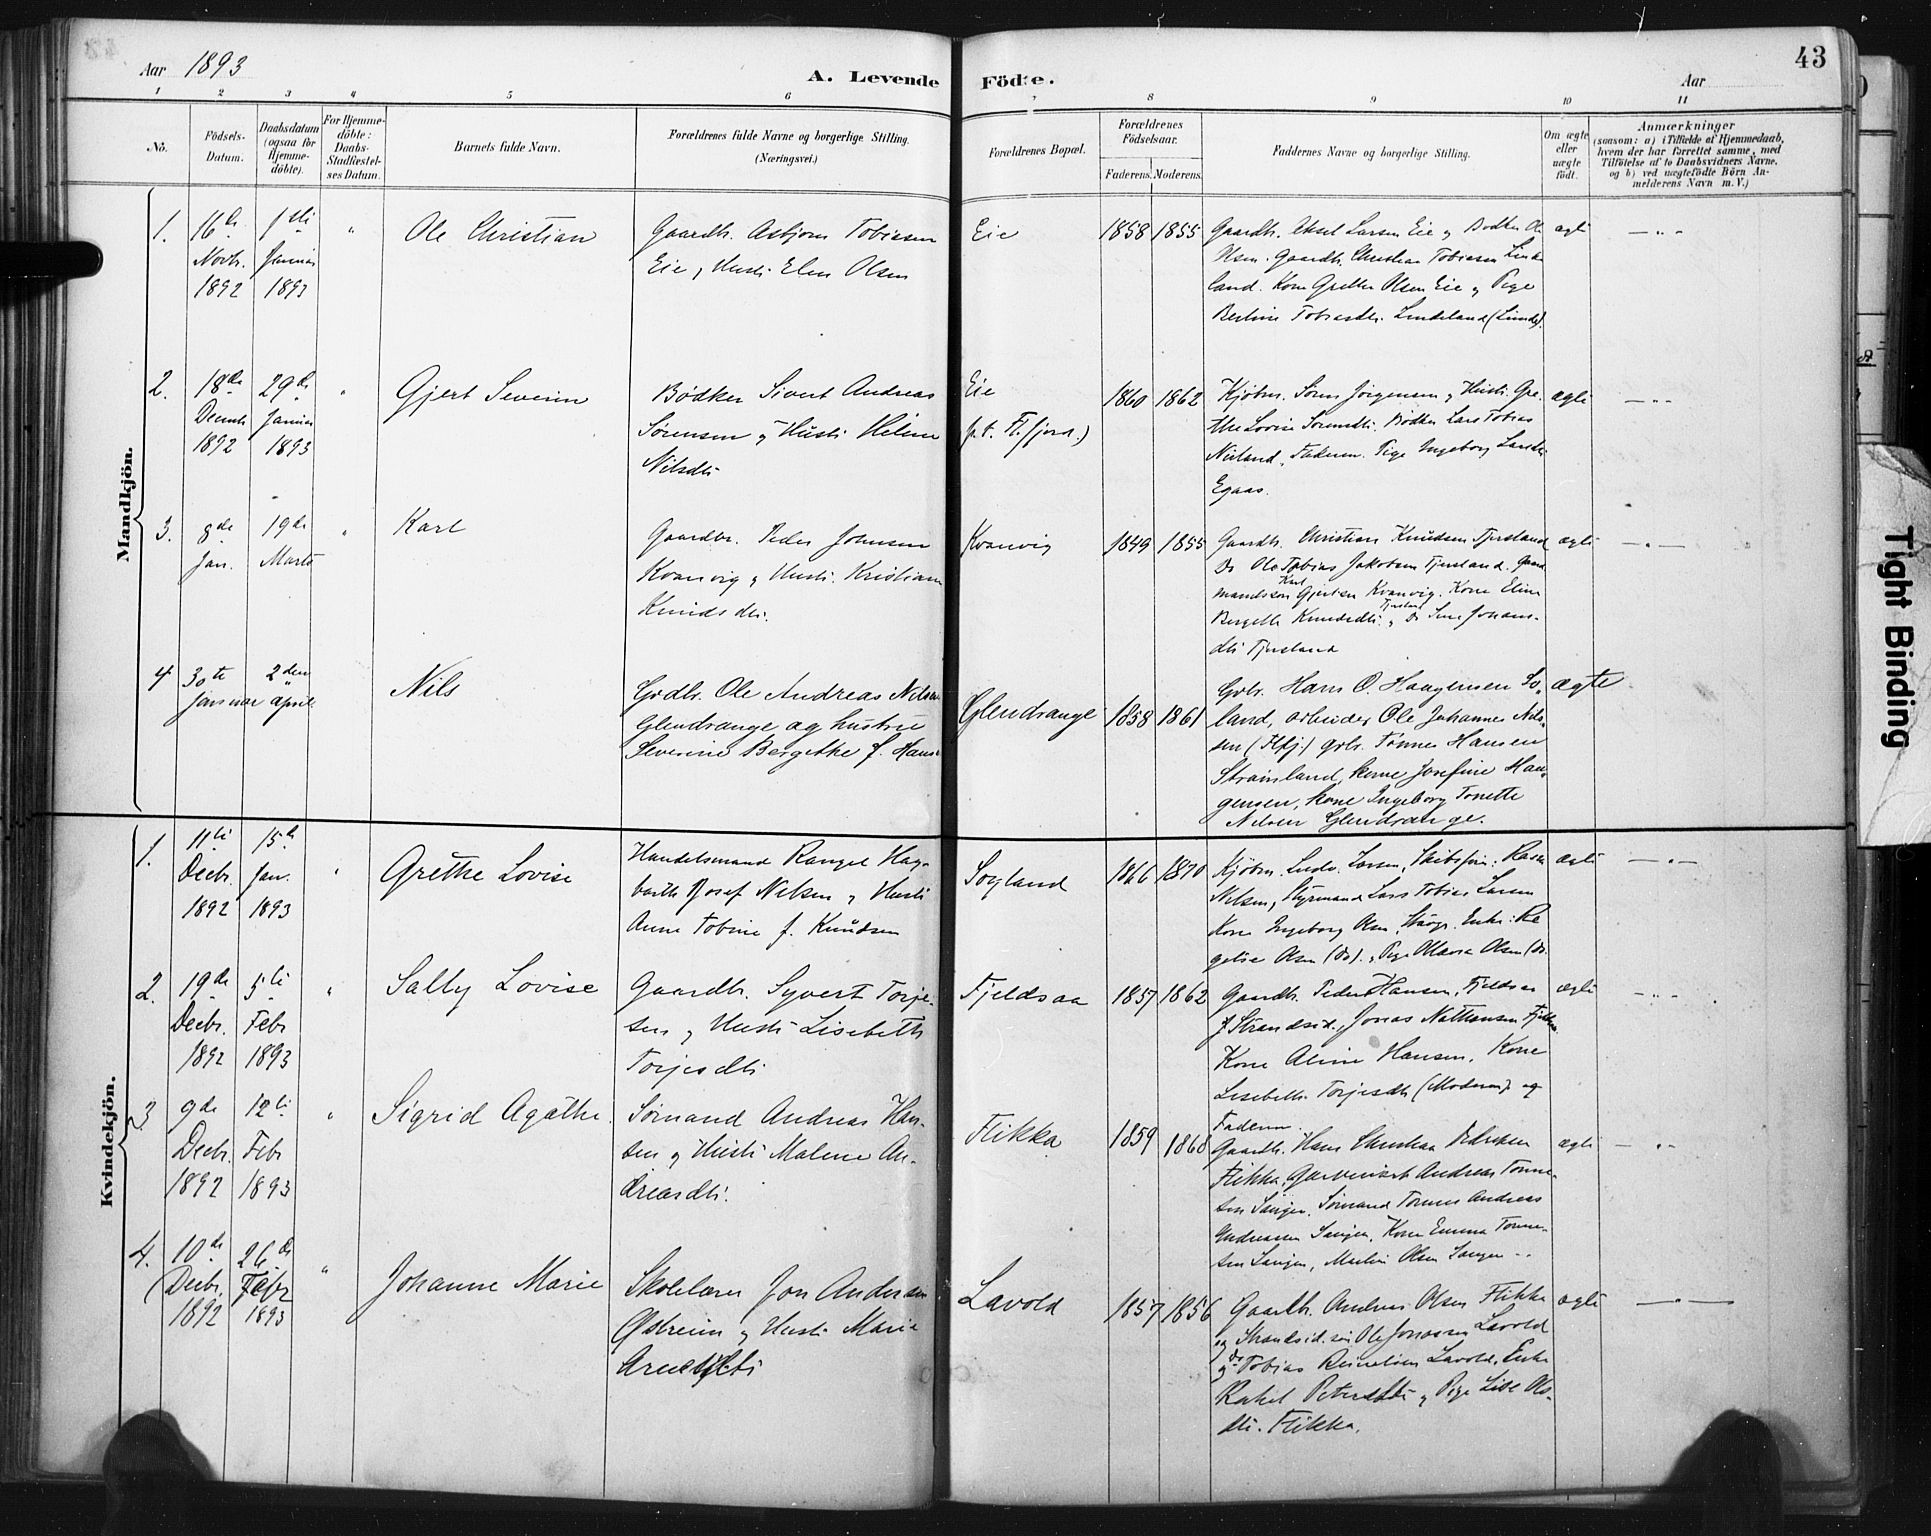 43
Aar 1893
A. Levende Födte.
Aar
1 2 3 4 5 6 7 8 9 10 11
No.
Födsels-Datum.
Daabsdatum (ogsaa for Hjemme-döbte).
For Hjemme-döbte: Daabs-Stadfæstel-ses Datum.
Barnets fulde Navn.
Forældrenes fulde Navne og borgerlige Stilling. (Næringsvei.)
Forældrenes Bopæl.
Forældrenes Födselsaar.
Faderens. Moderens.
Faddernes Navne og borgerlige Stilling.
Om ægte eller uægte födt.
Anmærkninger
(saasom: a) i Tilfælde af Hjemmedaab,
hvem der har forrettet samme, med
Tilföielse af to Daabsvidners Navne,
og b) ved uægtefödte Börn An-
melderens Navn m. V.)
Mandkjön.
1. 16de Novbr. 1892 1ste Januar 1893 "
Ole Christian
Gaardbr. Asbjørn Tobiasen
Eie og Hustr. Elen Olsen
Eie
1858 1855
Gaardbr. Aksel Larsen Eie og Bødker Ole
Olsen. Gaardbr. Christian Tobiasen Linde
land. Kone Grethe Olsen Eie og Pige
Berline Tobiasdtr. Lindeland (Lunde).
ægte
2. 18de Decemb. 1892 29de Januar 1893 "
Gjert Severin
Bødker Sivert Andreas
Sørensen og Hustr. Heline
Nilsdtr
Eie
p.t. Fl.fjord.)
1860 1862
Kjøbm. Søren Jørgensen og Hustr. Gre-
the Lovise Sørensdtr. Bødker Lars Tobias
Neiland, Faderen. Pige Ingeborg Larsdtr
Egaas.
ægte
3. 8de Jan. 19de Marts "
Karl
Gaardbr. Peder Johnsen
Kvanvig og Hustr. Kristiane
Knudsdtr.
Kvanvig
1849 1855
Gaardbr. Christian Knudsen Tjersland
Do Ole Tobias Jakobsen Tjersland. Gaard
mandssøn Karl Gjertsen Kvanvig. Kone Eline
Bergette Knudsdtr. Tjersland og Do Sine Johans-
dtr Tjersland
ægte
4 30te Januar 2den April
Nils
Grdbr. Ole Andreas Nilsen
Glendrange og hustru
Severine Bergethe f. Hans
Glendrange
1858 1861
Grbr. Hans O. Haugensen So-
land, arbeider Ole Johannes Nils-
sen (Flfj.) grbr. Tønnes Hansen
Strømsland, kone Josefine Hau-
gensen, kone Ingeborg Tonette
Nilsen Glendrange.
ægte.
Kvindekjön.
1. 11te Decbr. 1892 15de Jan. 1893 "
Grethe Lovise
Handelsmand Rangel Hag-
barth Josef Nilsen og Hustr
Anne Tobine f. Knudsen
Sogland
1866 1870
Kjøbm. Ludv. Larsen, Rasm
Nilsen, Styrmand Lars Tobias Larsen
Kone Ingeborg Olsen, Enke
Olsen (Do). og Pige Maria Olsen (Do.
ægte
2. 19de Decbr. 1892 5te Febr 1893 "
Sally Lovise
Gaardbr. Syvert Torje-
sen og Hustr Lisebeth
Torjesdtr
Fjeldsaa
1857 1862
Gaardbr. Peder Hansen, Fjeldsaa
Strandsid. Jonas Nathansen
Kone Aline Hansen, Kone
Lisebeth Torjesdtr (Moderen). og
Faderen.
ægte
3 9de Decbr. 1892 12te Febr 1893 "
Sigrid Agathe.
Sømand Andreas Han-
sen og Hustr Malene An-
dreasdtr.
Flikka
1859 1868
Gaardbr. Hans Christian Pedersen
Flikka, Andreas Tønne-
sen Sømand Tønnes Andreas
Andreassen Kone Emma Tønne-
sen Olsen
ægte
4. 10de Decbr. 1892 26de Febr 1893 "
Johanne Marie
Skolelærer Jon Andersen
Østreim og Hustr Marie
Lavold
1857 1856
Gaardbr. Andreas Olsen Flikka
og Strandsid. Ole Jonassen Lavold
og do Tobias Lavold, Enke
Rakel Petersdtr og Pige Lise Ols-
dtr. Flikka.
ægte
Tight Binding